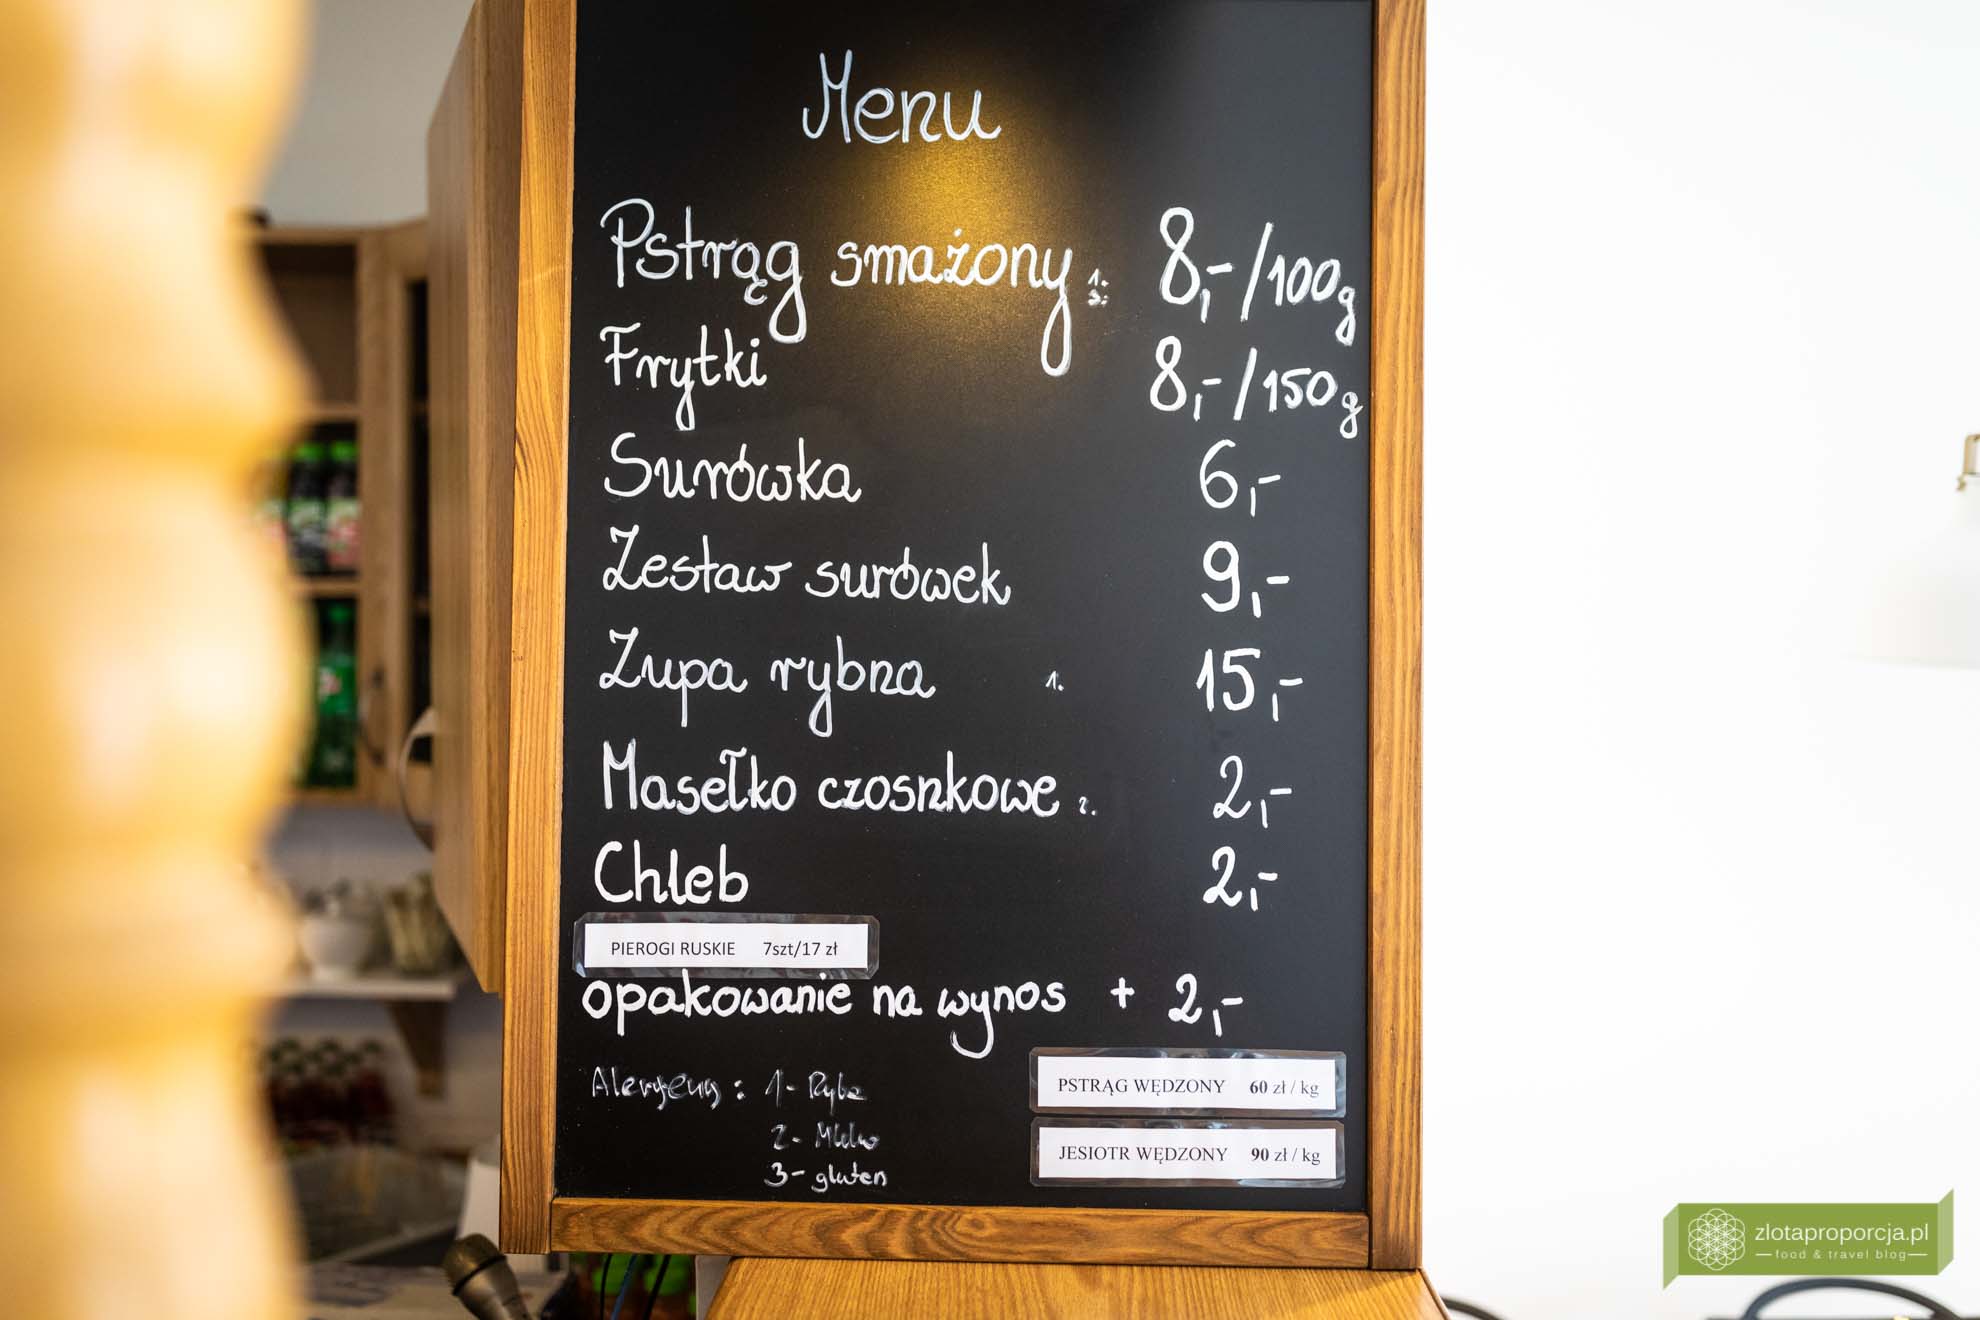 Menu
Pstrąg smażony 1. 3. 8,-/100g
Frytki 8,-/150g
Surówka 6,-
Zestaw surówek 9,-
Zupa rybna 1. 15,-
Masełko czosnkowe 2. 2,-
Chleb 2,-
PIEROGI RUSKIE 7szt/17 zł
opakowanie na wynos + 2,-
Alergeny: 1- Ryba
2- Mleko
3- gluten
PSTRĄG WĘDZONY 60 zł / kg
JESIOTR WĘDZONY 90 zł / kg
zlotaproporcja.pl
food & travel blog